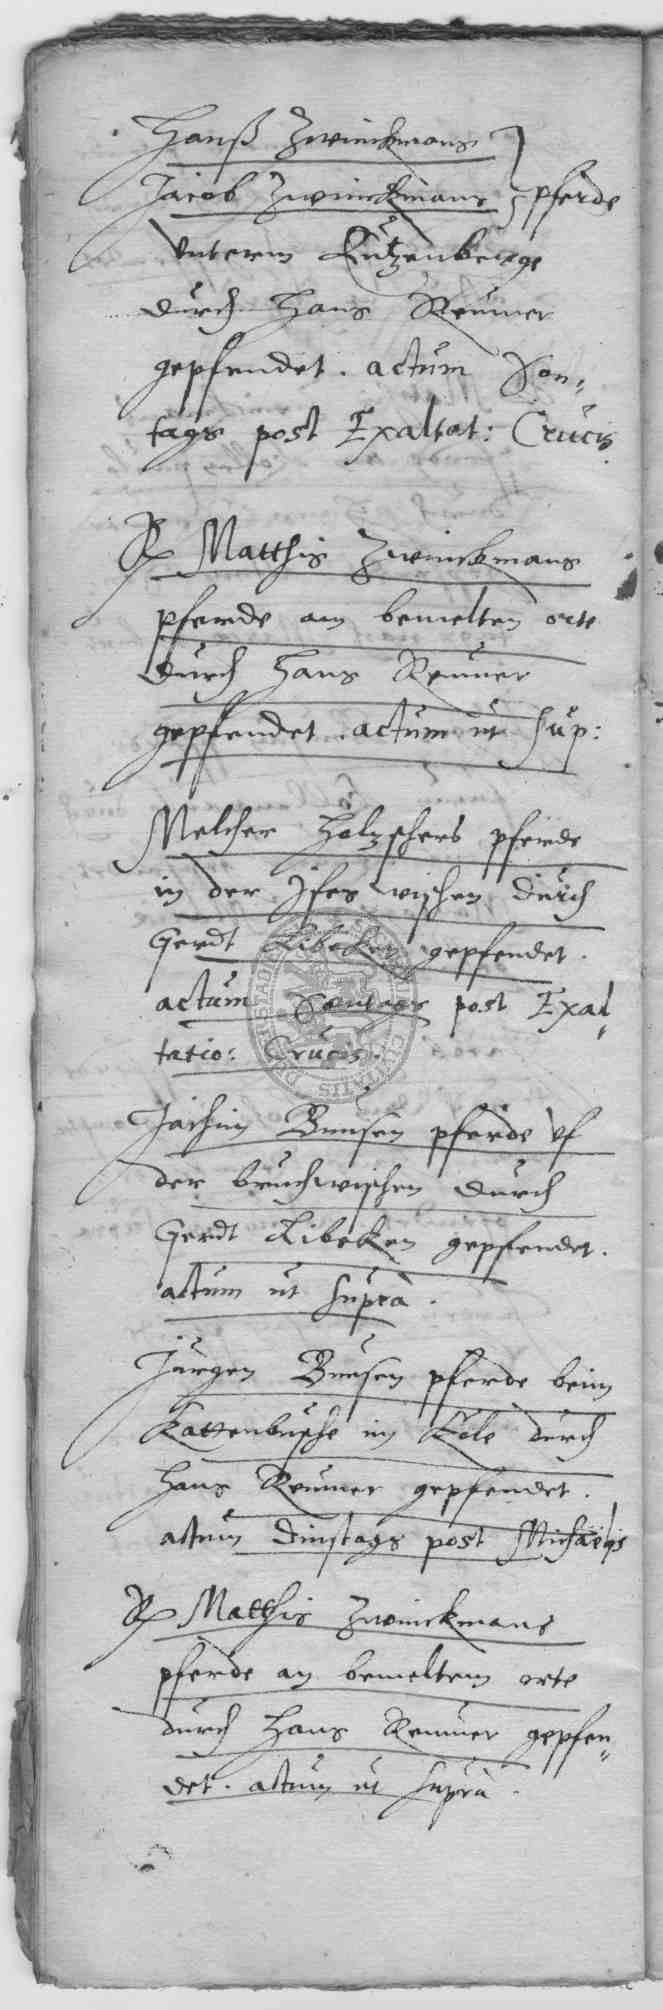 Hanß Zwinckmans
Jacob Zwinckmans } pferde
Vnterm Kützenberge
durch Hans Reuuer
gepfendet. actum Son„
tags post Exaltat: Crucis
R Matthis Zwinckmans
pferde am bemelten orte
durch Hans Reuuer
gepfendet. actum ut sup:
Melcher Holzschers pferde
in der wischen durch
Gerdt Libeken gepfendet.
actum Sontags post Exal„
tatio: Crucis.
Jachim Bunsen pferde vf
der bruchwischen durch
Gerdt Libeken gepfendet.
actum ut suprà.
Jürgen Bunsen pferde beim
Kattenbusche im durch
Hans Reuuer gepfendet.
actum Dinstags post Michaëlis
R Matthis Zwinckmans
pferde an bemeltem orte
durch Hans Reuuer gepfen„
det. actum ut suprà.